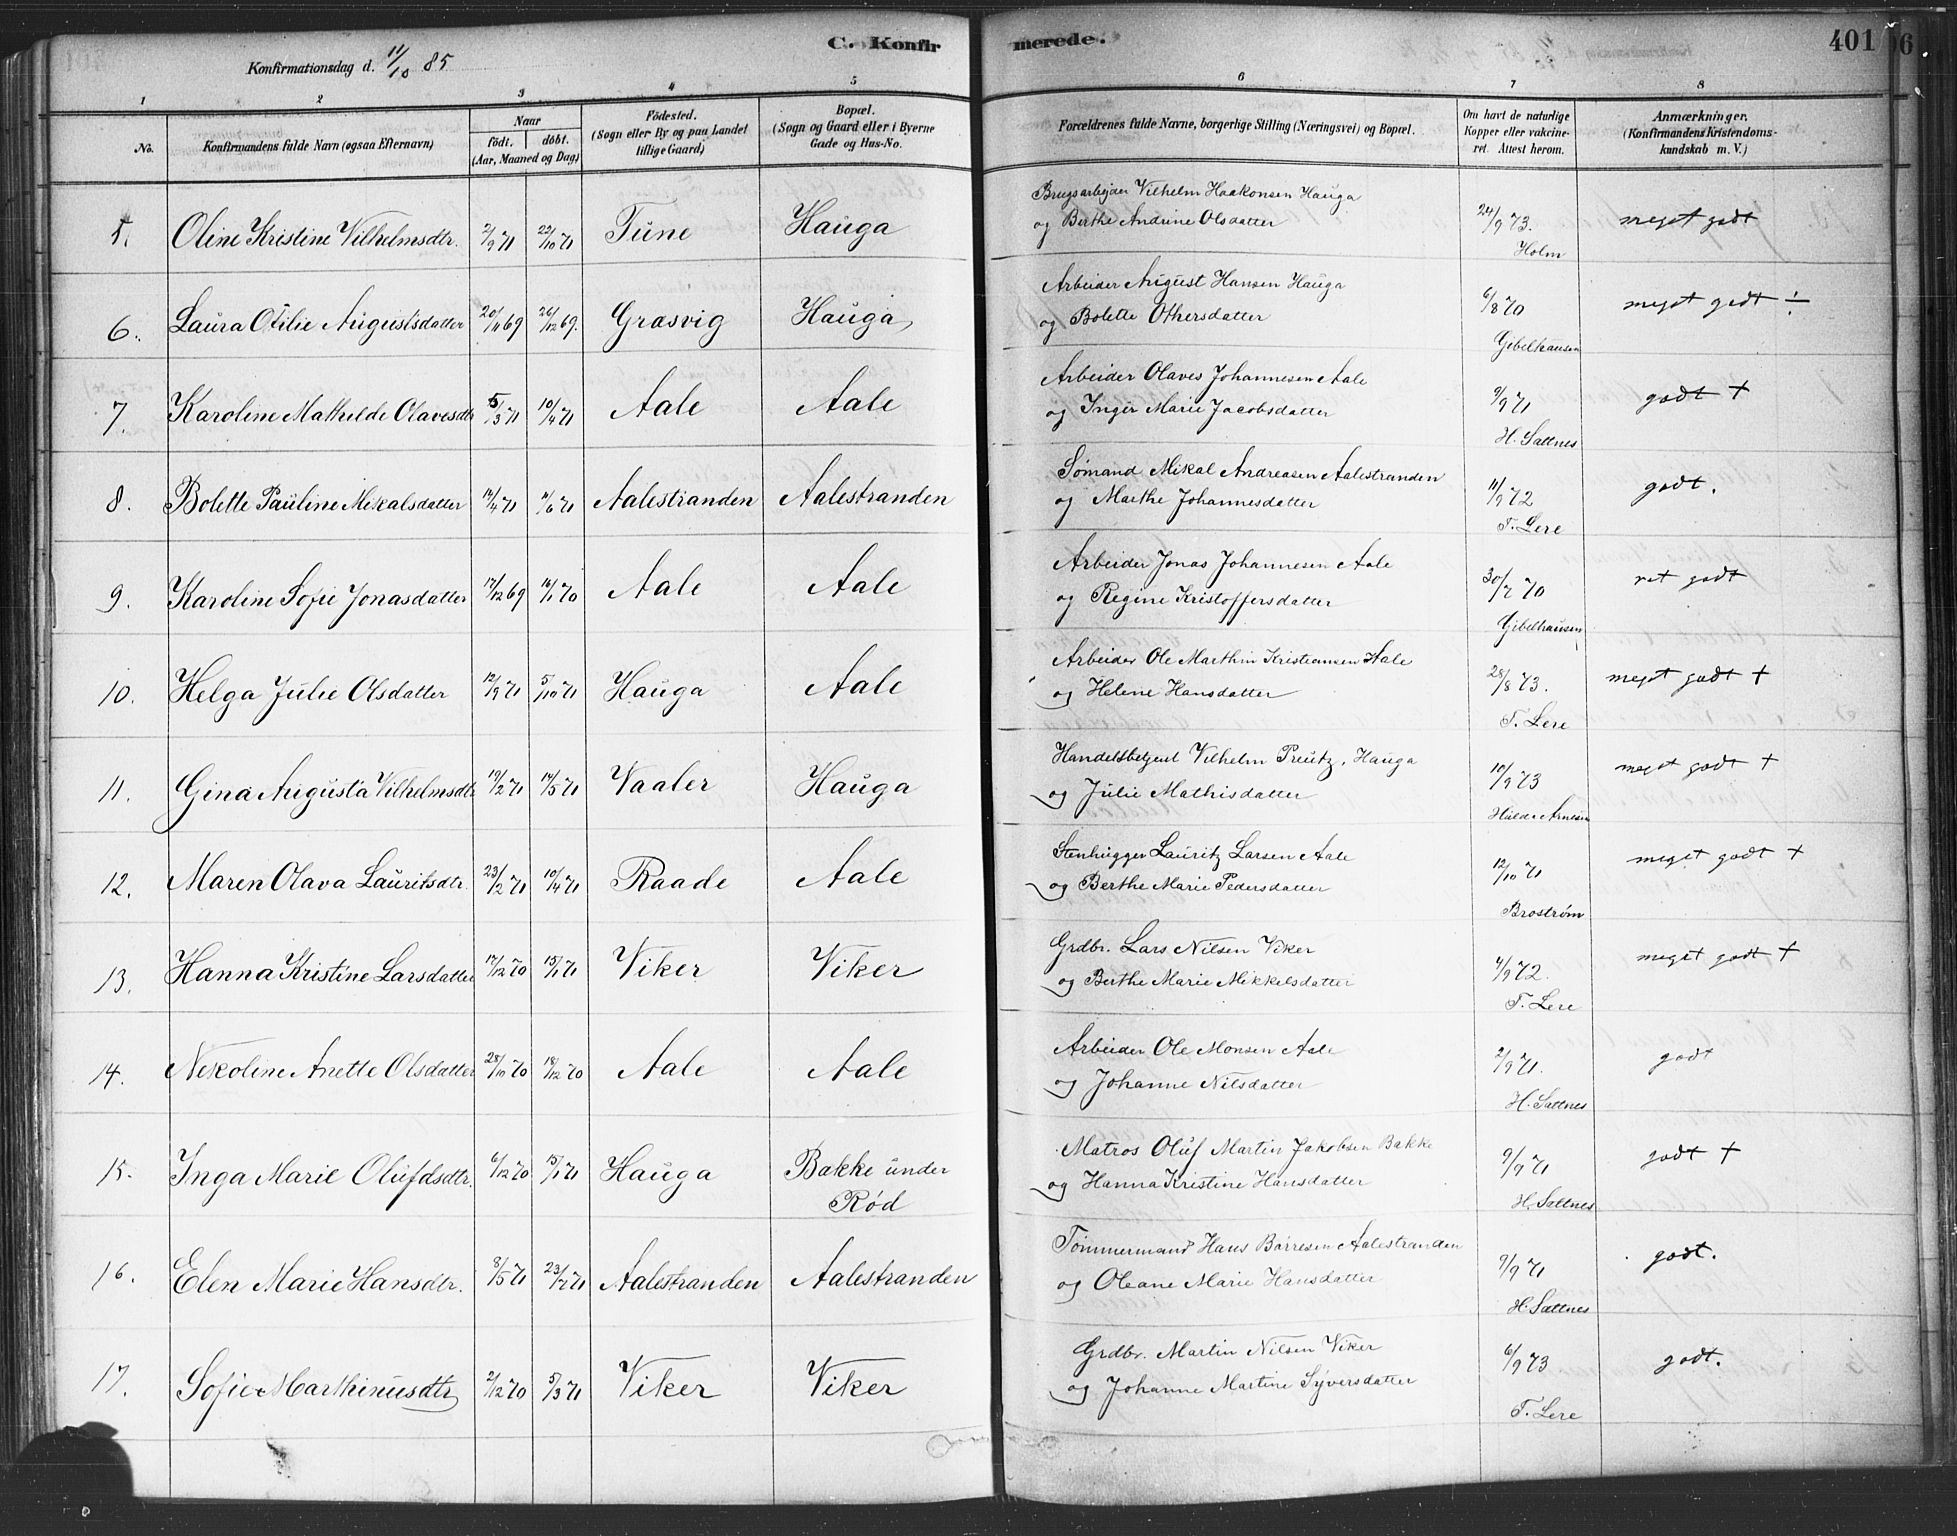 C. Konfirmerede.
401
6
Konfirmationsdag d. 11/10 85
1 2 3 4 5 6 7 8
No.
Konfirmandens fulde Navn (ogsaa Efternavn)
Naar
født. døbt.
(Aar, Maaned og Dag)
Fødested.
(Sogn eller By og paa Landet tillige Gaard)
Bopæl.
(Sogn og Gaard eller i Byerne Gade og Hus-No.
Forældrenes fulde Navne, borgerlige Stilling (Næringsvei) og Bopæl.
Om havt de naturlige Kopper eller vakcineret. Attest herom.
Anmærkninger.
(Konfirmandens Kristendomskundskab m. V.)
5. Oline Kristine Vilhelmsdtr. 2/9 71 22/10 71 Tune Hauga Brugsarbejder Vilhelm Haakonsen Hauga
og Berthe Andrine Olsdatter 24/9 73. Holm meget godt
6. Laura Otilie Augustsdatter 20/11 69 26/12 69. Græsvig Hauga Arbeider August Hansen Hauga
og Bolette Othersdatter 6/8 70 Gibelhausen meget godt ÷
7. Karoline Mathilde Olavesdtr 5/3 71 10/4 71 Aale Aale Arbeider Olaves Johannesen Aale
og Inger Marie Jacobsdatter 9/9 71 H. Sattnes godt +
8. Bolette Pauline Mikalsdatter 12/4 71 11/6 71 Aalestranden Aalestranden Sømand Mikal Andreasen Aalestranden
og Marthe Johannesdatter 11/9 72 T. Lere godt.
9. Karoline Sofie Jonasdatter 17/12 69 16/1 70 Aale Aale Arbeider Jonas Johannesen Aale
og Regine Kristoffersdatter 30/7 70 Gibelhausen ret godt
10. Helga Julie Olsdatter 12/9 71 5/10 71 Hauga Aale Arbeider Ole Marthin Kristiansen Aale
og Helene Hansdatter 28/8 73. T. Lere meget godt +
11. Gina Augusta Vilhelmsdtr 19/2 71 14/5 71 Vaaler Hauga Handelsbetjent Vilhelm Preutz, Hauga
og Julie Mathisdatter 10/9 73 Arnesen meget godt +
12. Maren Olava Lauritsdtr. 23/2 71 10/4 71 Raade Aale Stenhugger Lauritz Larsen Aale
og Berthe Marie Pedersdatter 12/10 71 Brostrøm meget godt +
13. Hanna Kristine Larsdatter 17/12 70 15/1 71 Viker Viker Grdbr. Lars Nilsen Viker
og Berthe Marie Mikkelsdatter 4/9 72. T. Lere meget godt +
14. Nikoline Anette Olsdatter 28/10 70 18/12 70 Aale Aale Arbeider Ole Monsen Aale
og Johanne Nilsdatter 2/9 71. H. Sattnes godt
15. Inga Marie Olufdsdtr. 6/12 70 15/1 71 Hauga Bakke under Rød Matros Oluf Martin Jakobsen Bakke
og Hanna Kristine Hansdatter 9/9 71 H. Sattnes godt +
16. Elen Marie Hansdtr. 8/5 71 23/7 71 Aalestranden Aalestranden Tømmermand Hans Børresen Aalestranden
og Oleane Marie Hansdatter 9/9 71 H. Sattnes godt.
17. Sofie Marthinusdtr 2/12 70 5/3 71 Viker Viker Grdbr. Martin Nilsen Viker
og Johanne Martine Syversdatter 6/9 73 T. Lere godt.